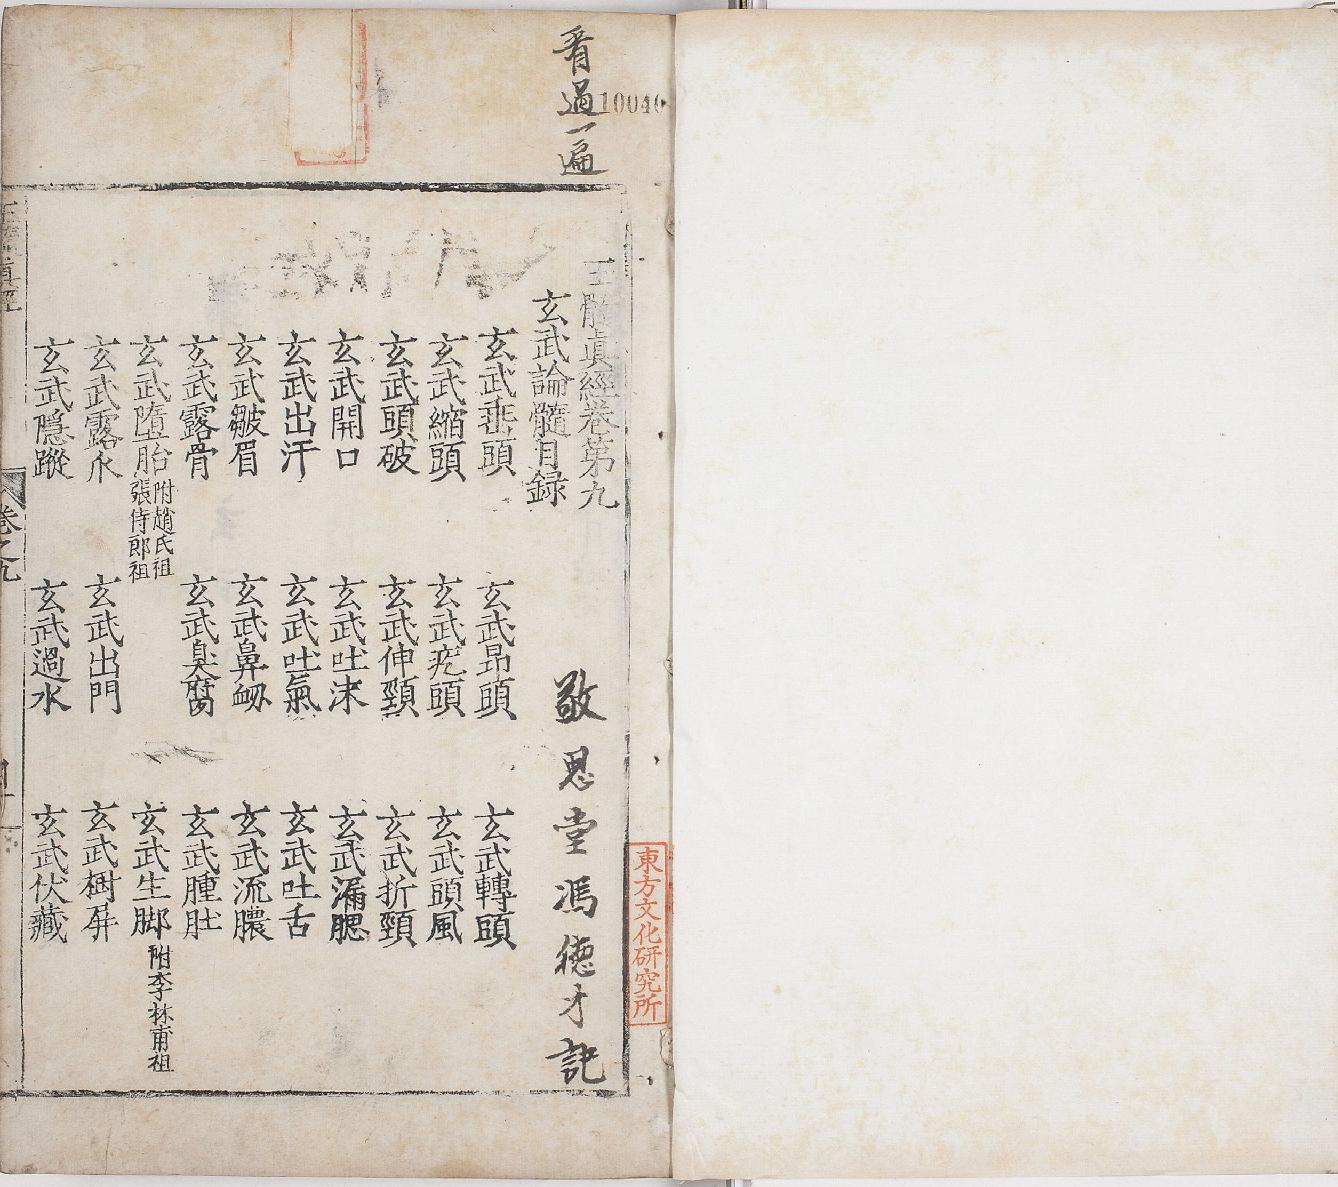 看過一遍
10040
玉髓真經卷第九
玄武論髓目録
敬思堂馮德才記
東方文化研究所
玄武垂頭 玄武昂頭 玄武轉頭
玄武縮頭 玄武疙頭 玄武頭風
玄武頭破 玄武伸頸 玄武折頸
玄武開口 玄武吐沫 玄武漏腮
玄武出汗 玄武吐氣 玄武吐舌
玄武皺眉 玄武鼻衂 玄武流膿
玄武露骨 玄武臭腐 玄武腫肚
玄武墮胎 附趙氏祖 張侍郎祖 玄武生脚 附李林甫祖
玄武露爪 玄武出門 玄武樹屏
玄武隱蹤 玄武過水 玄武伏藏
卷之九